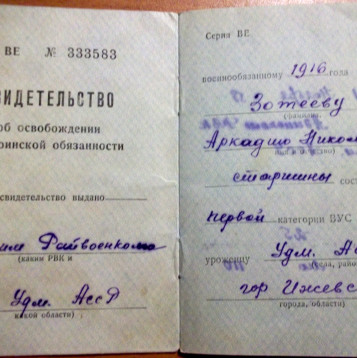 ВЕ № 333583
ВИДЕТЕЛЬСТВО
об освобождении
воинской обязанности
свидетельство выдано
ким Райвоенкомо
(каким РВК и
Удм. АССР
какой области)
Серия ВЕ
военнообязанному 1916 года
Зотееву
(фамилия,
Аркадию Никол
старшины сост
первой категории ВУС
уроженцу Удм. АС
гор Ижевс
города, области)